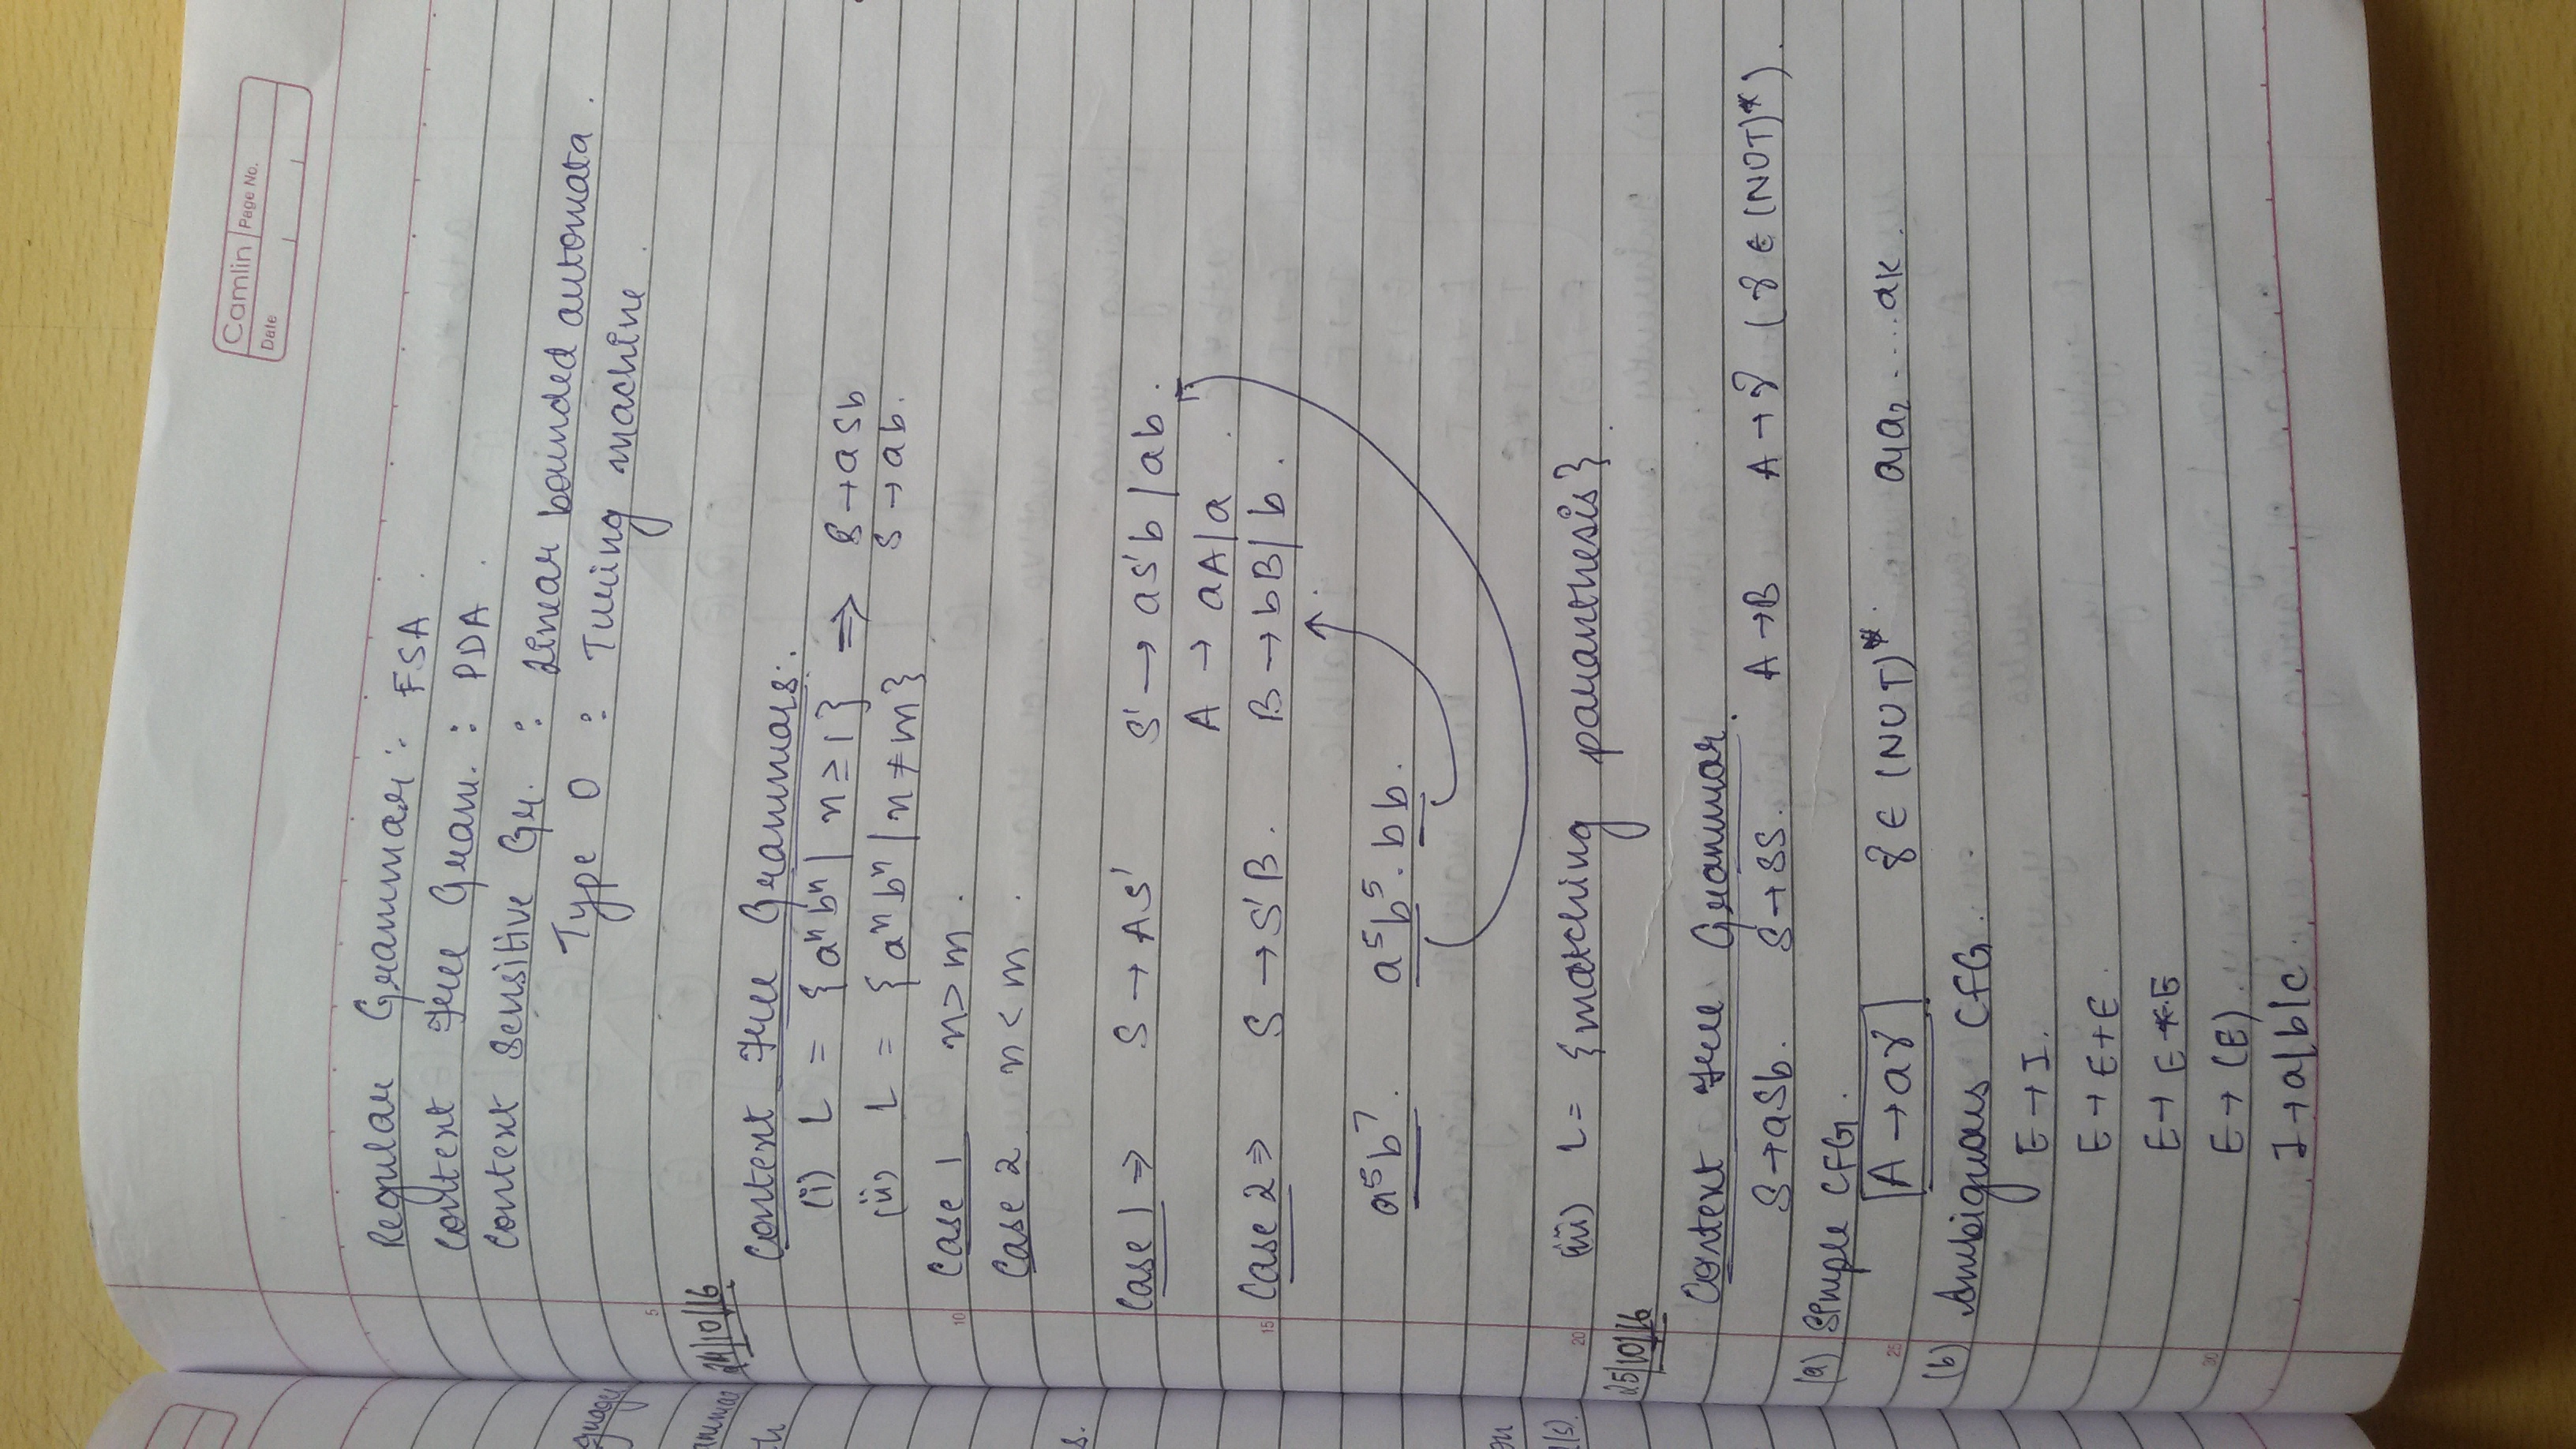 Camlin Page No.
Date
Regular Grammar : FSA .
Context Free Gram. : PDA .
Context Sensitive Gr. : Linear bounded automata .
Type 0 : Turing machine .
5
24/10/16
Context Free Grammars.
(i) L = {aⁿbⁿ | n ≥ 1} ⇒ S → aSb
(ii) L = {aⁿbⁿ | n ≠ m} S → ab.
10 Case 1 n > m .
Case 2 n < m .
Case 1 ⇒ S → AS' S' → aS'b | ab .
A → aA | a .
15 Case 2 ⇒ S → S'B . B → bB | b .
a⁵b⁷ . a⁵b⁵ . bb .
20 (iii) L = {matching paranthesis} .
25/10/16
Context Free Grammar.
S → aSb . S → SS . A → B A → γ ( γ ∈ (NUT)* ) .
(a) Simple CFG .
25 A → aγ γ ∈ (NUT)* . a₁a₂ .... ak .
(b) Ambiguous CFG .
E → I .
E → E+E .
E → E*E
30 E → (E) .
I → a|b|c .
guages
ammar
th
s.
on